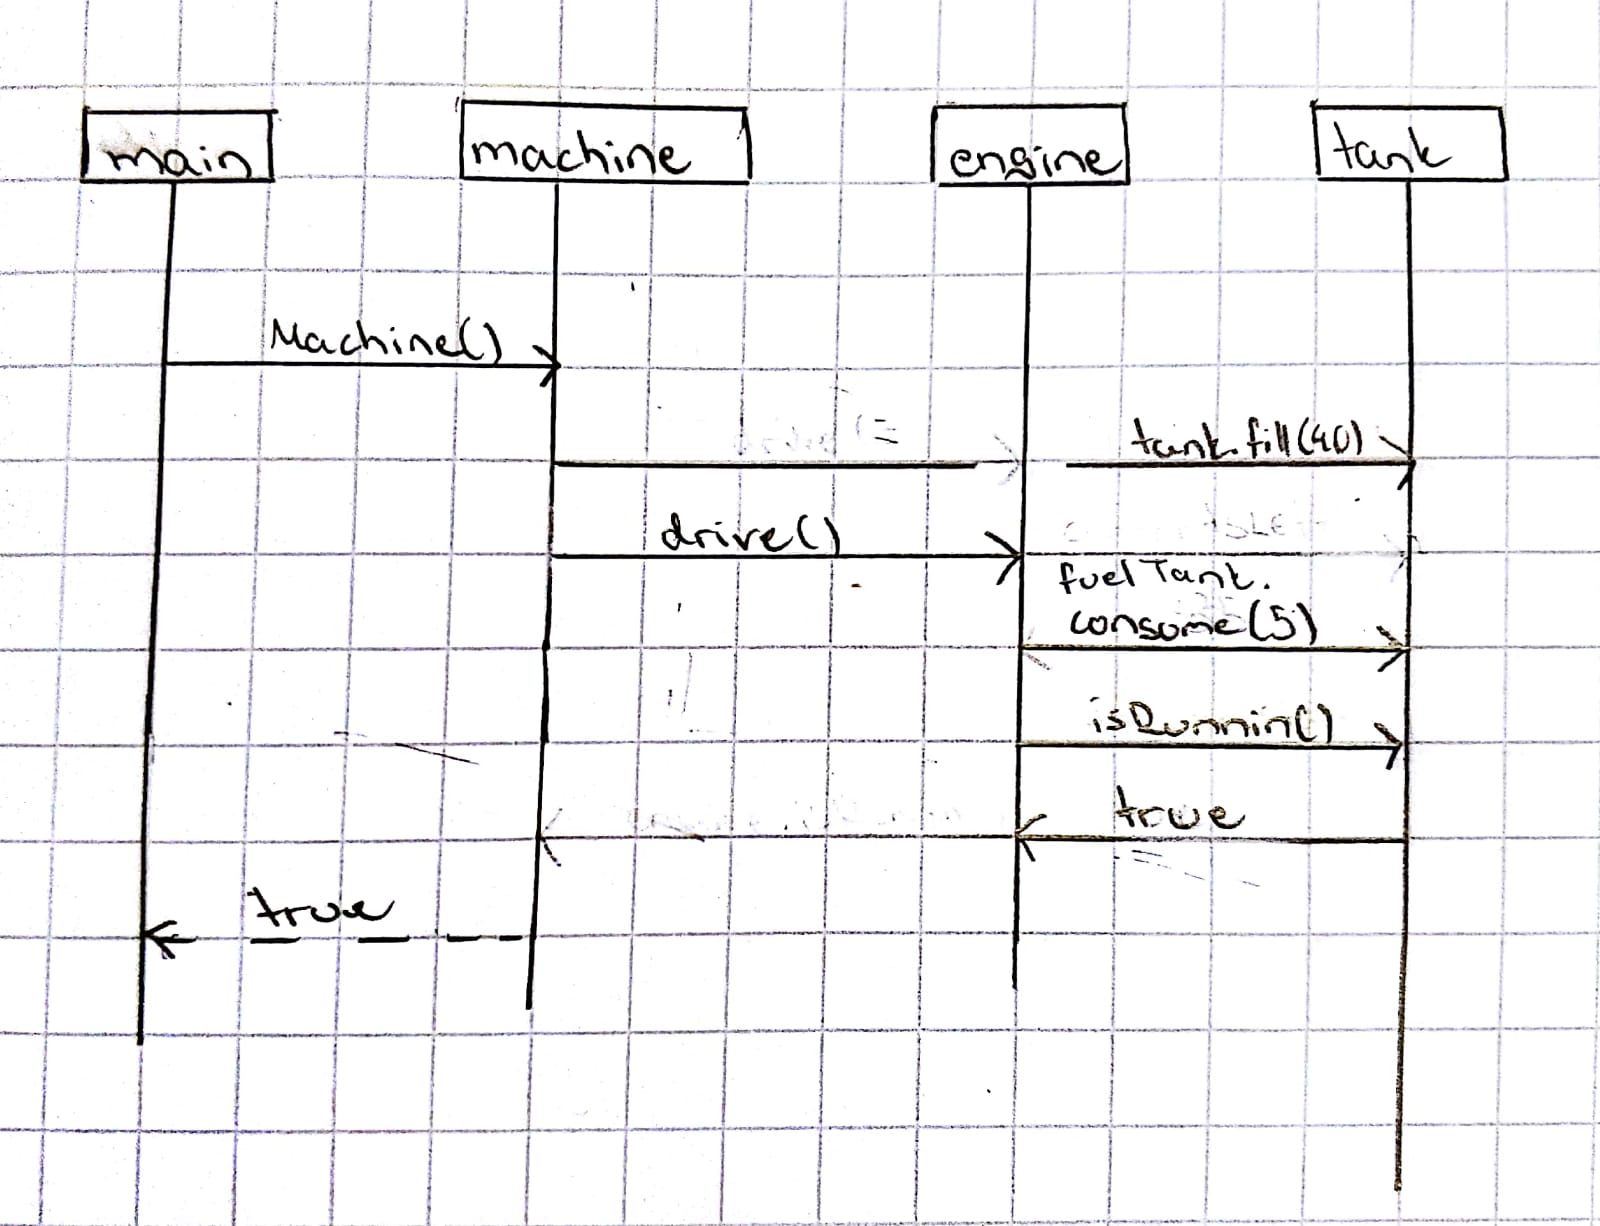 main
machine
engine
tank
Machine()
tank.fill(40)
drive()
fuelTank.
consume(5)
isRunnin()
true
true